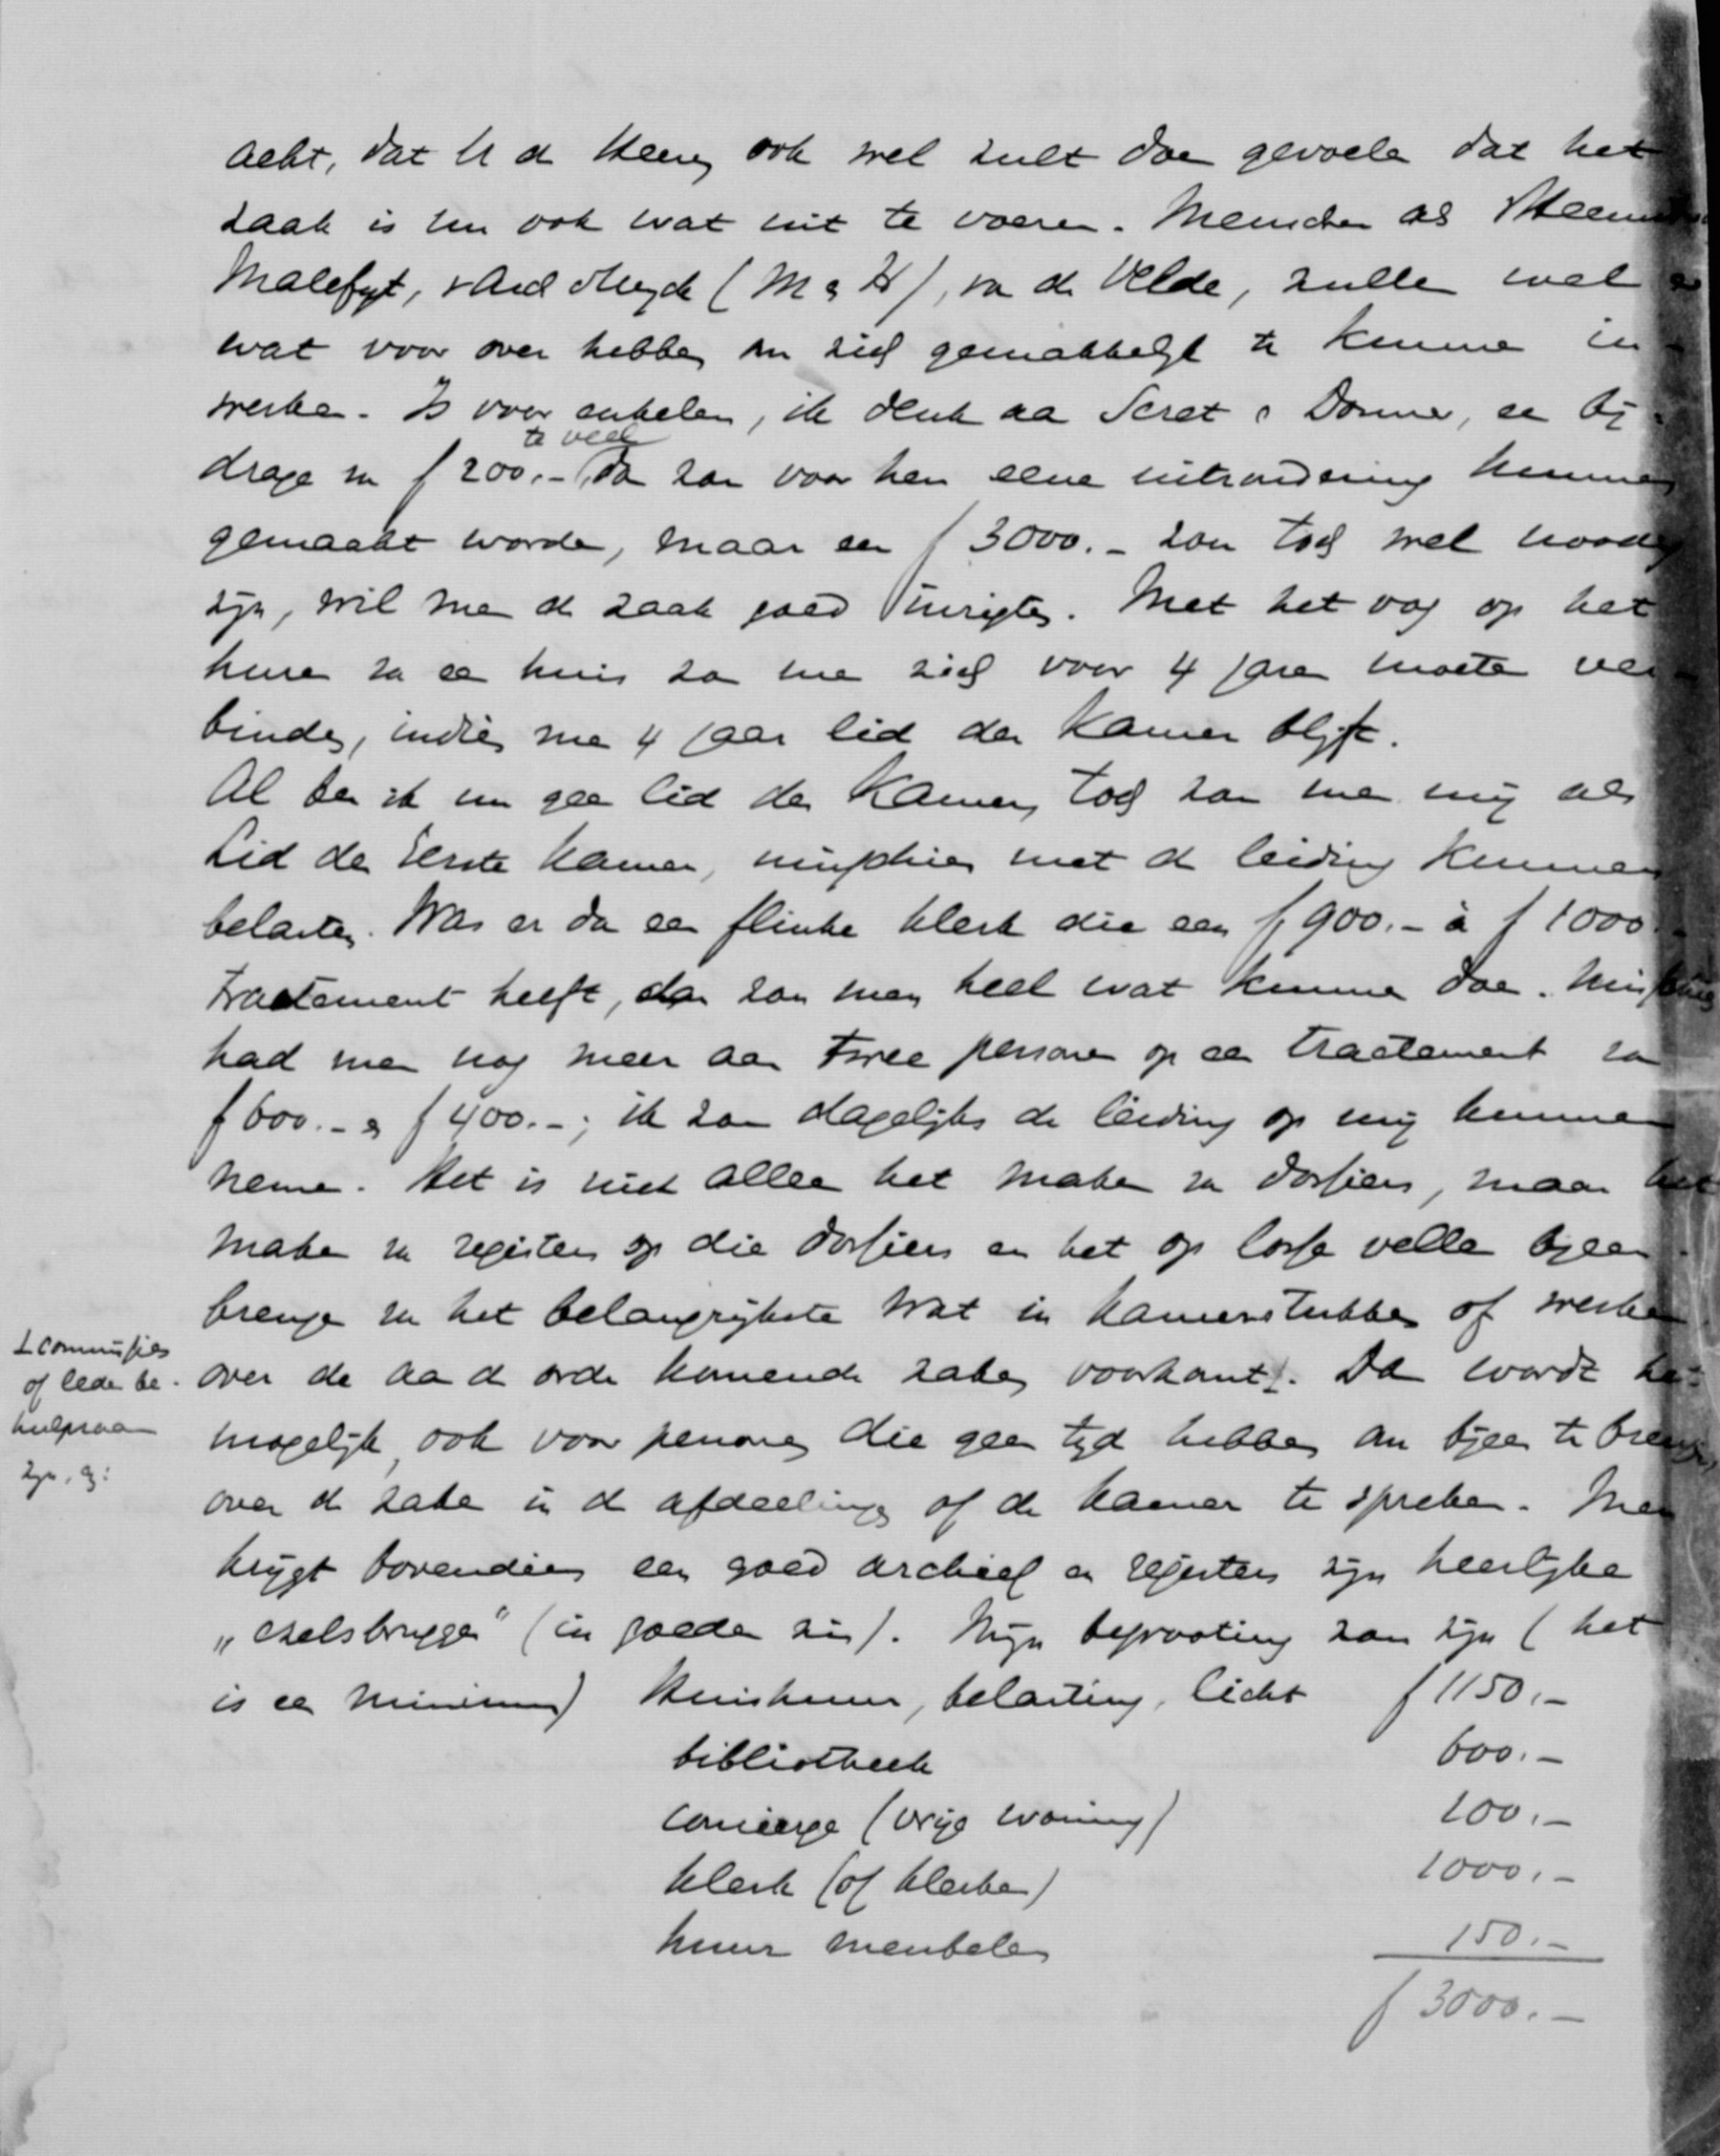 acht, dat U de Heeren ook wel zult doen gevoelen dat het
zaak is nu ook wat uit te voeren. Menschen als Heems
Malefyt, v Asch v Wyck (M & H), van de Velde, zullen wel er
wat voor over hebben om zich gemakkelyk te kunnen in-
werken. Is voor enkelen, ik denk aan Seret & Donner, een by-
drage van f 200.- te veel dan zou voor hen eene uitzondering kunnen
gemaakt worden, maar een f 3000.- zou toch wel noodig
zyn, wil men de zaak goed inrigten. Met het oog op het
huren van een huis zou men zich voor 4 jaren moeten ver-
binden, indien men 4 jaar lid der Kamer blyft.
Al ben ik nu geen lid der Kamer, toch zou men my als
Lid der Eerste Kamer, misschien met de leiding kunnen
belasten. Was er dan een flinke klerk die een f 900.- à f 1000.-
tractement heeft, dan zou men heel wat kunnen doen. Misschien
had men nog meer aan twee personen op een tractement van
f 600.- & f 400.-; ik zou dagelyks de leiding op my kunnen
nemen. Het is niet alleen het maken van dossiers, maar het
maken van registers op die dossiers en het op losse vellen byeen-
brengen van het belangrykste wat in kamerstukken of werken
over de aan de orde komende zaken voorkomt. Dan wordt het
mogelyk, ook voor personen die geen tyd hebben om byeen te brengen,
over de zaken in de afdeelingen of de kamer te spreken. Men
krygt bovendien een goed archief en registers zyn heerlyke
„ezelsbruggen" (in goeden zin). Myn begrooting zou zyn (het
is een minimum) Huishuur, belasting, licht f 1150.-
bibliotheek 600.-
concierge (vrye woning) 100.-
klerk (of klerken) 1000.-
huur meubelen 150.-
f 3000.-
commissies
of leden be-
hulpzaam
zyn,